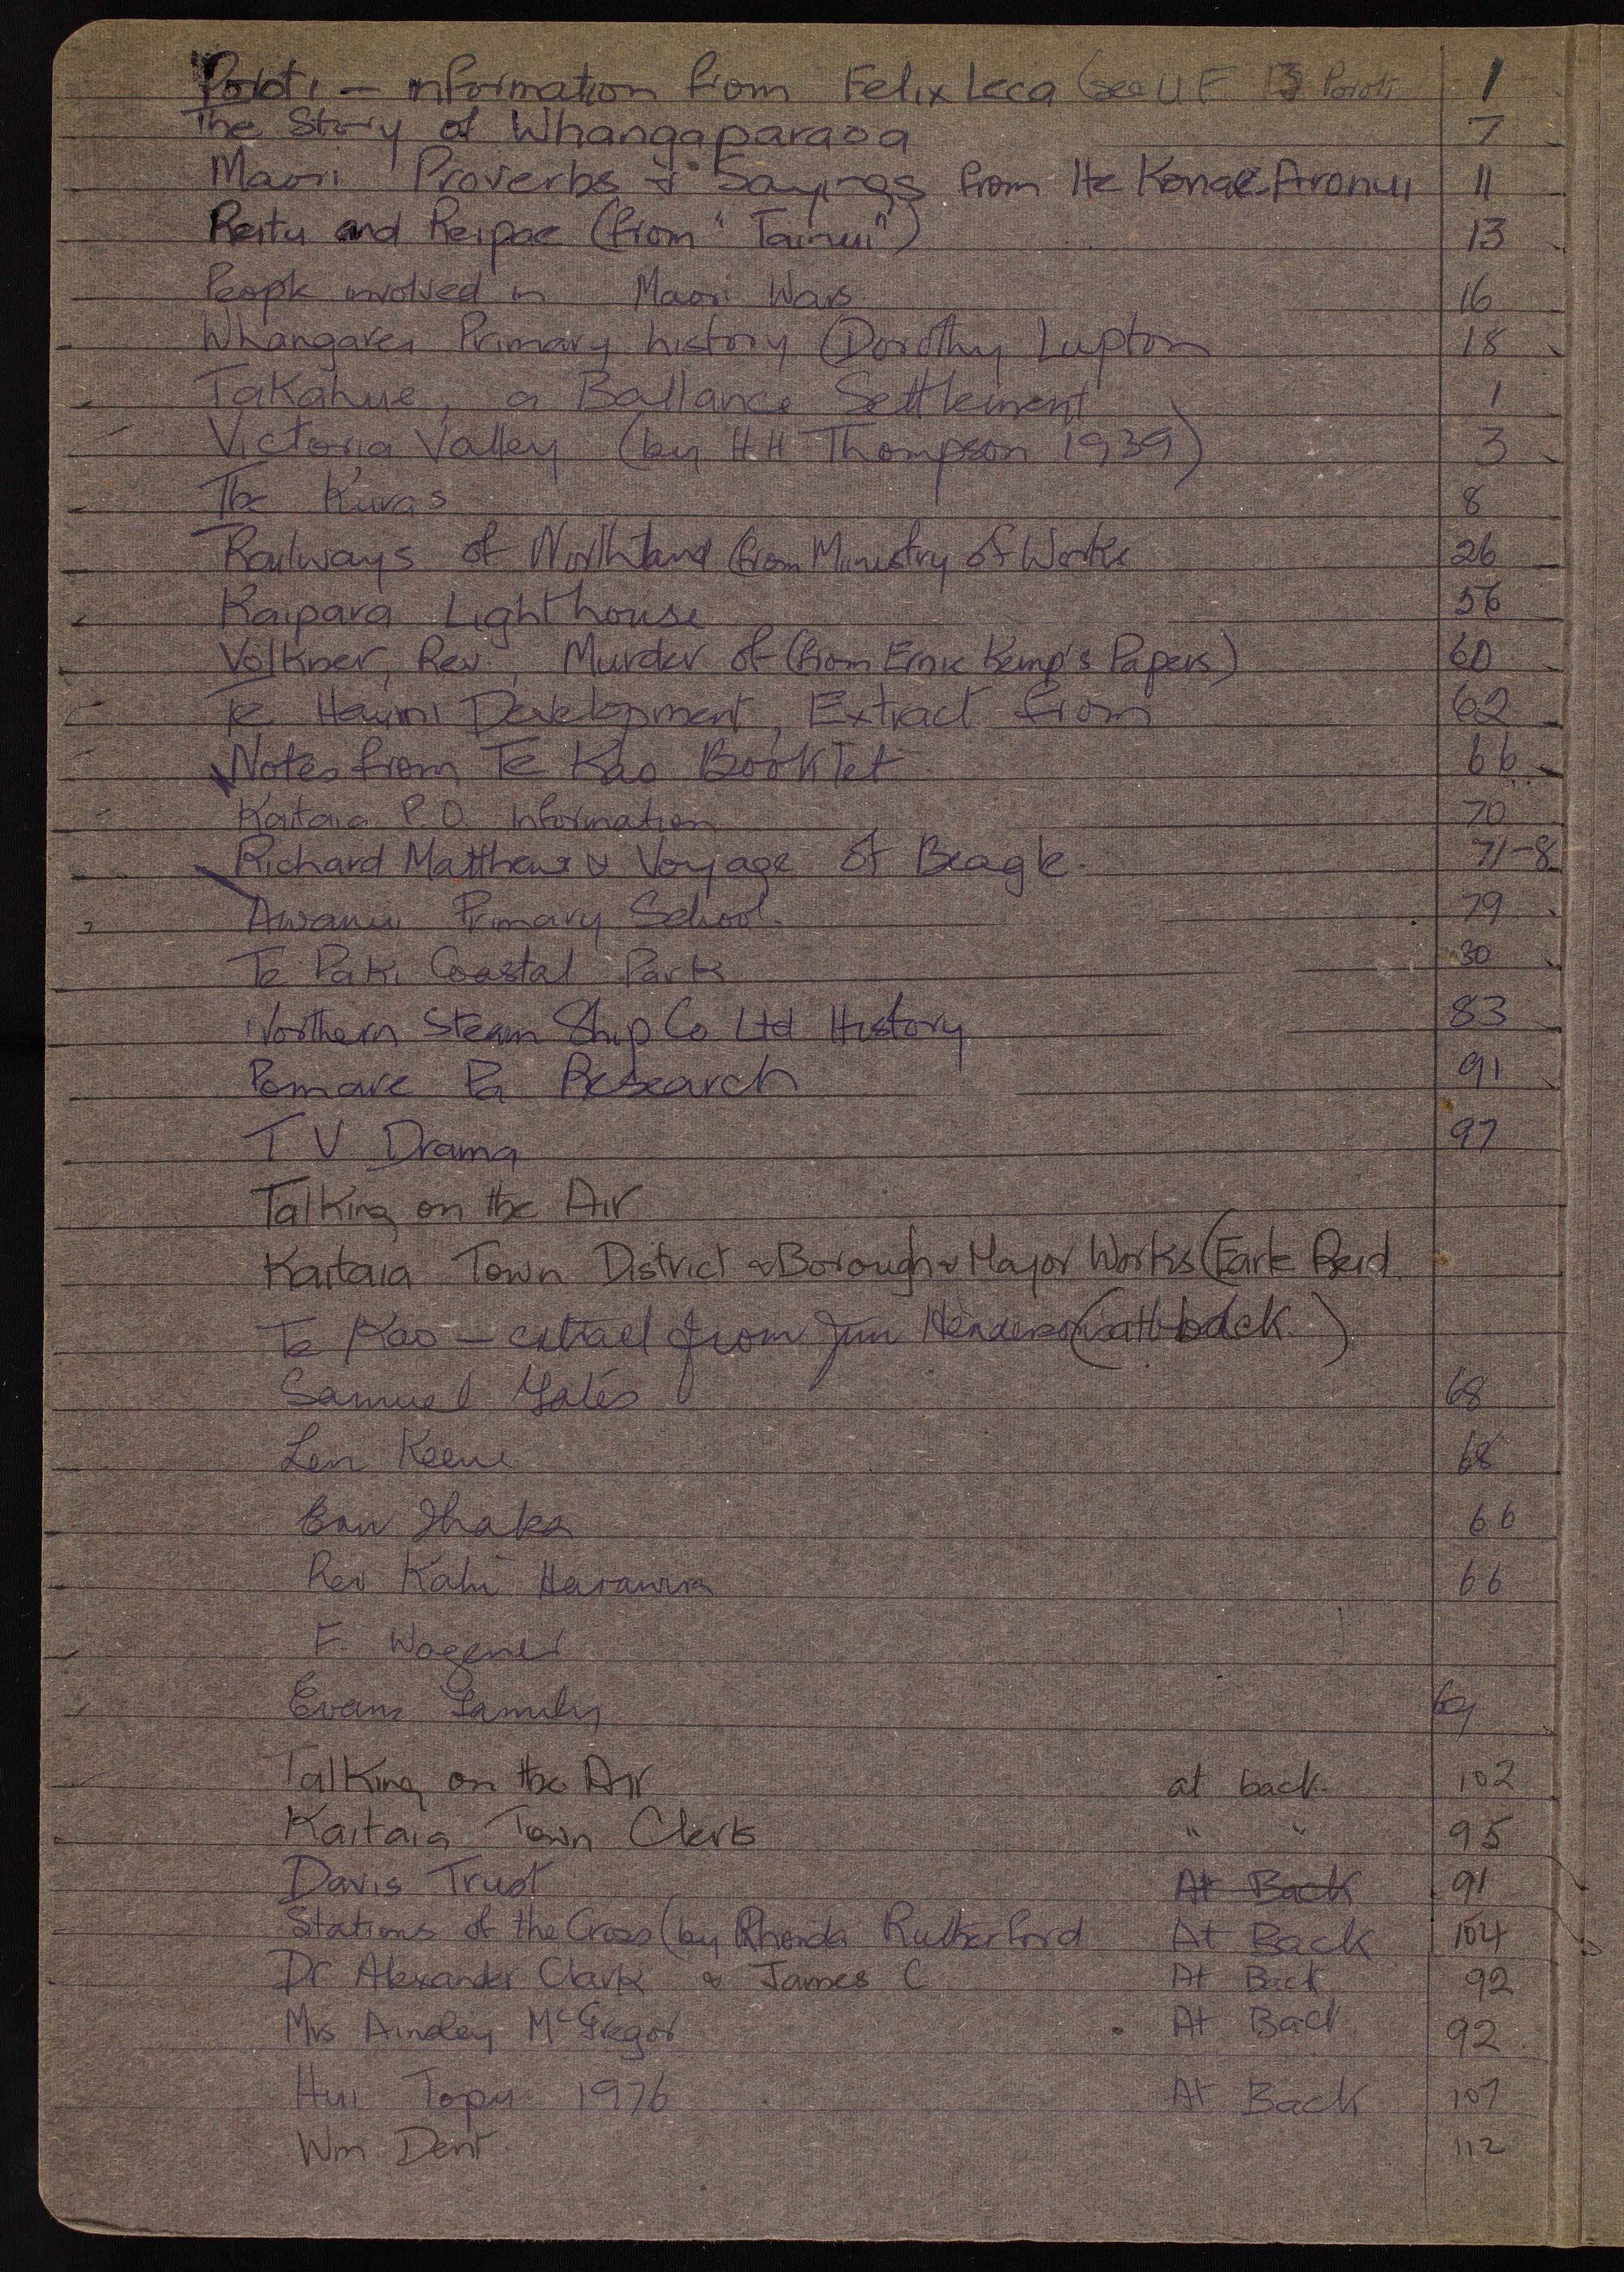 Poroti - information from Felix Leca (see U F 13 Poroti 1
The Story of Whangaparaoa 7
Maori Proverbs & Sayings from He Konae Aronui 11
Reitu and Reipae (from "Tainui") 13
People involved in Maori Wars 16
Whangarei Primary history (Dorothy Lupton 18
Takahue, a Ballance Settlement 1
Victoria Valley (by H H Thompson 1939) 3
The Kuras 8
Railways of Northland (from Ministry of Works 26
Kaipara Lighthouse 56
Volkner, Rev., Murder of (from Ernie Kemp's Papers) 60
Te Hapua Development, Extract from 62
Notes from Te Kao Booklet 66
Kaitaia P.O. Information 70
Richard Matthews & Voyage of Beagle. 71-8
Awanui Primary School. 79
Te Paki Coastal Park 80
Northern Steam Ship Co Ltd History 83
Pomare Pa Research 91
T V Drama 97
Talking on the Air
Kaitaia Town District & Borough & Major Works (Earle Reid
Te Kao - extract from Jim Henderson (at back.)
Samuel Yates 68
Len Keene 68
Eru Ihaka 66
Rev Kahi Harawira 66
F. Wagener
Evans Family 69
Talking on the Air at back. 102
Kaitaia Town Clerks " " 95
Davis Trust At Back 91
Stations of the Cross (by Rhonda Rutherford At Back 104
Dr Alexander Clark & James C At Back 92
Mrs Ainsley McGregor At Back 92
Hui Topu 1976 At Back 107
Wm Dent 112